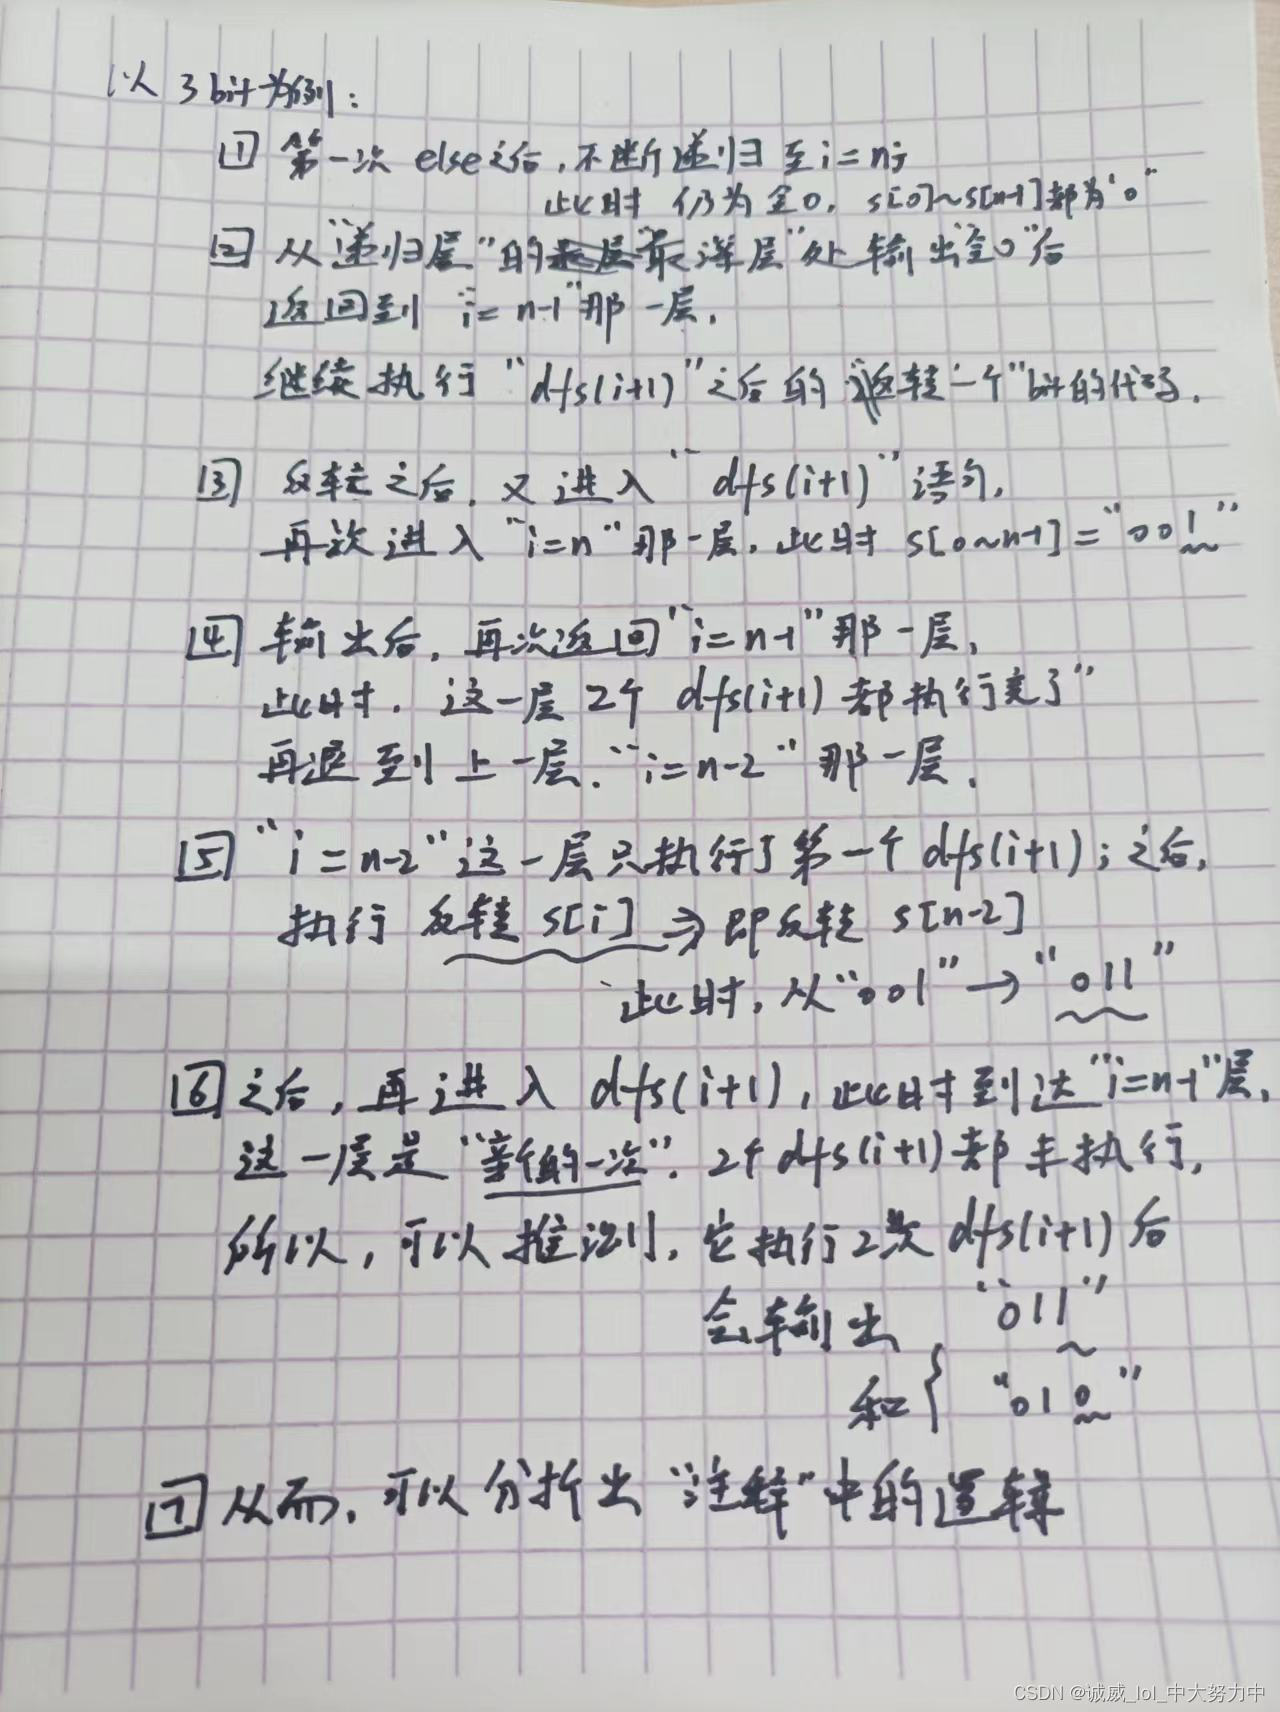 以 3 bit 为例：
1 第一次 else之后，不断递归至 i = n；
此时 仍为全0，s[0]~s[n-1]都为"0"
2 从"递归层"的"最深层"处输出"全0"后
返回到 i = n-1"那一层，
继续执行 "dfs(i+1)"之后的"反转一个"bit的代码，
3 反转之后，又进入 "dfs(i+1)"语句，
再次进入"i=n"那一层，此时 s[0~n-1] = "001"
4 输出后，再次返回"i=n-1"那一层，
此时，这一层2个 dfs(i+1)都执行完了"
再退到上一层."i=n-2"那一层，
5 "i=n-2"这一层只执行了第一个dfs(i+1)；之后，
执行 反转 s[i] => 即反转 s[n-2]
此时，从"001" → "011"
6 之后，再进入 dfs(i+1)，此时到达"i=n-1"层，
这一层是"新的一次"，2个dfs(i+1)都未执行，
所以，可以推测，它执行2次 dfs(i+1)后
会输出 "011"
和{ "010"
7 从而，可以分析出"注释"中的逻辑
CSDN @诚威_lol_中大努力中